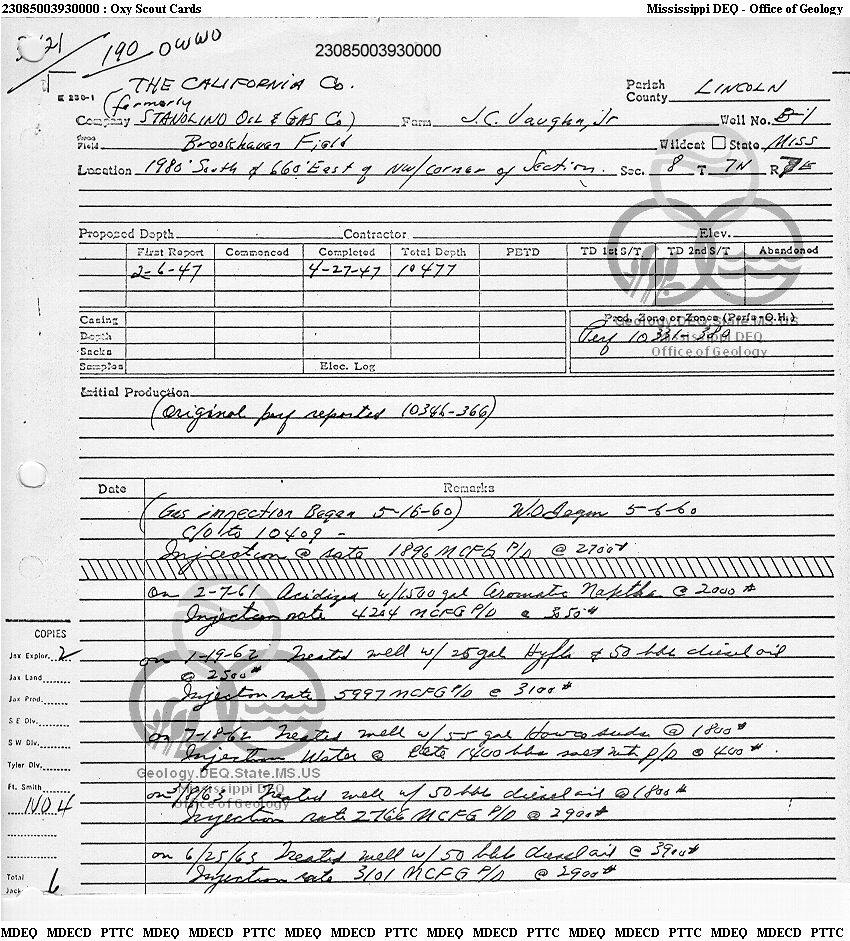 23085003930000 : Oxy Scout Cards Mississippi DEQ - Office of Geology
190 OWWO
23085003930000
E 230-1
THE CALIFORNIA Co.
(formerly
Parish
County LINCOLN
Company STANOLIND OIL & GAS Co) Farm J.C. Vaughn, Jr Well No. B-1
Field Brookhaven Field Wildcat State MISS
Location 1980' South & 660' East of NW/corner of Section. Sec. 8 T 7N R 7 E
Proposed Depth Contractor Elev.
First Report Commenced Completed Total Depth PBTD TD 1st S/T TD 2nd S/T Abandoned
2-6-47 4-27-47 10477
Casing Prod. Zone or Zones (Perfs-O.H.)
Geology.DEQ.State.MS.US
Depth Perf 10331-389
Mississippi DEQ
Sacks Office of Geology
Samples Elec. Log
Initial Production
(Original perf reported 10346-366)
Date Remarks
(Gas injection Began 5-16-60) W.O Began 5-6-60
C/O to 10409 -
Injection @ rate 1896 MCFG P/D @ 2700#
on 2-7-61 Acidized w/1500 gal Aromatic Naptha @ 2000#
Injection rate 4254 MCFG P/D @ 3050#
COPIES
Jax Explor. 2
on 1-19-62 Treated well w/ 25 gal Hyflo & 50 bbl diesel oil
@ 2500#
Jax Land
Injection rate 5997 MCFG P/D @ 3100#
Jax Prod.
S E Div.
on 7-18-62 Treated well w/ 55 gal Howco suds @ 1800#
S W Div.
Injection Water @ Rate 1400 bbs salt wtr P/D @ 400#.
Tyler Div.
Geology.DEQ.State.MS.US
Mississippi DEQ
Office of Geology
Ft. Smith
on 5/8/63 Treated well w/ 50 bbl diesel oil @ 1800#
NO 4
Injection rate 2766 MCFG P/D @ 2900#
on 6/25/63 Treated well w/ 50 bbls diesel oil @ 3900#
Injection rate 3101 MCFG P/D @ 2900#
Total
Jack 6
MDEQ MDECD PTTC MDEQ MDECD PTTC MDEQ MDECD PTTC MDEQ MDECD PTTC MDEQ MDECD PTTC MDEQ MDECD PTTC